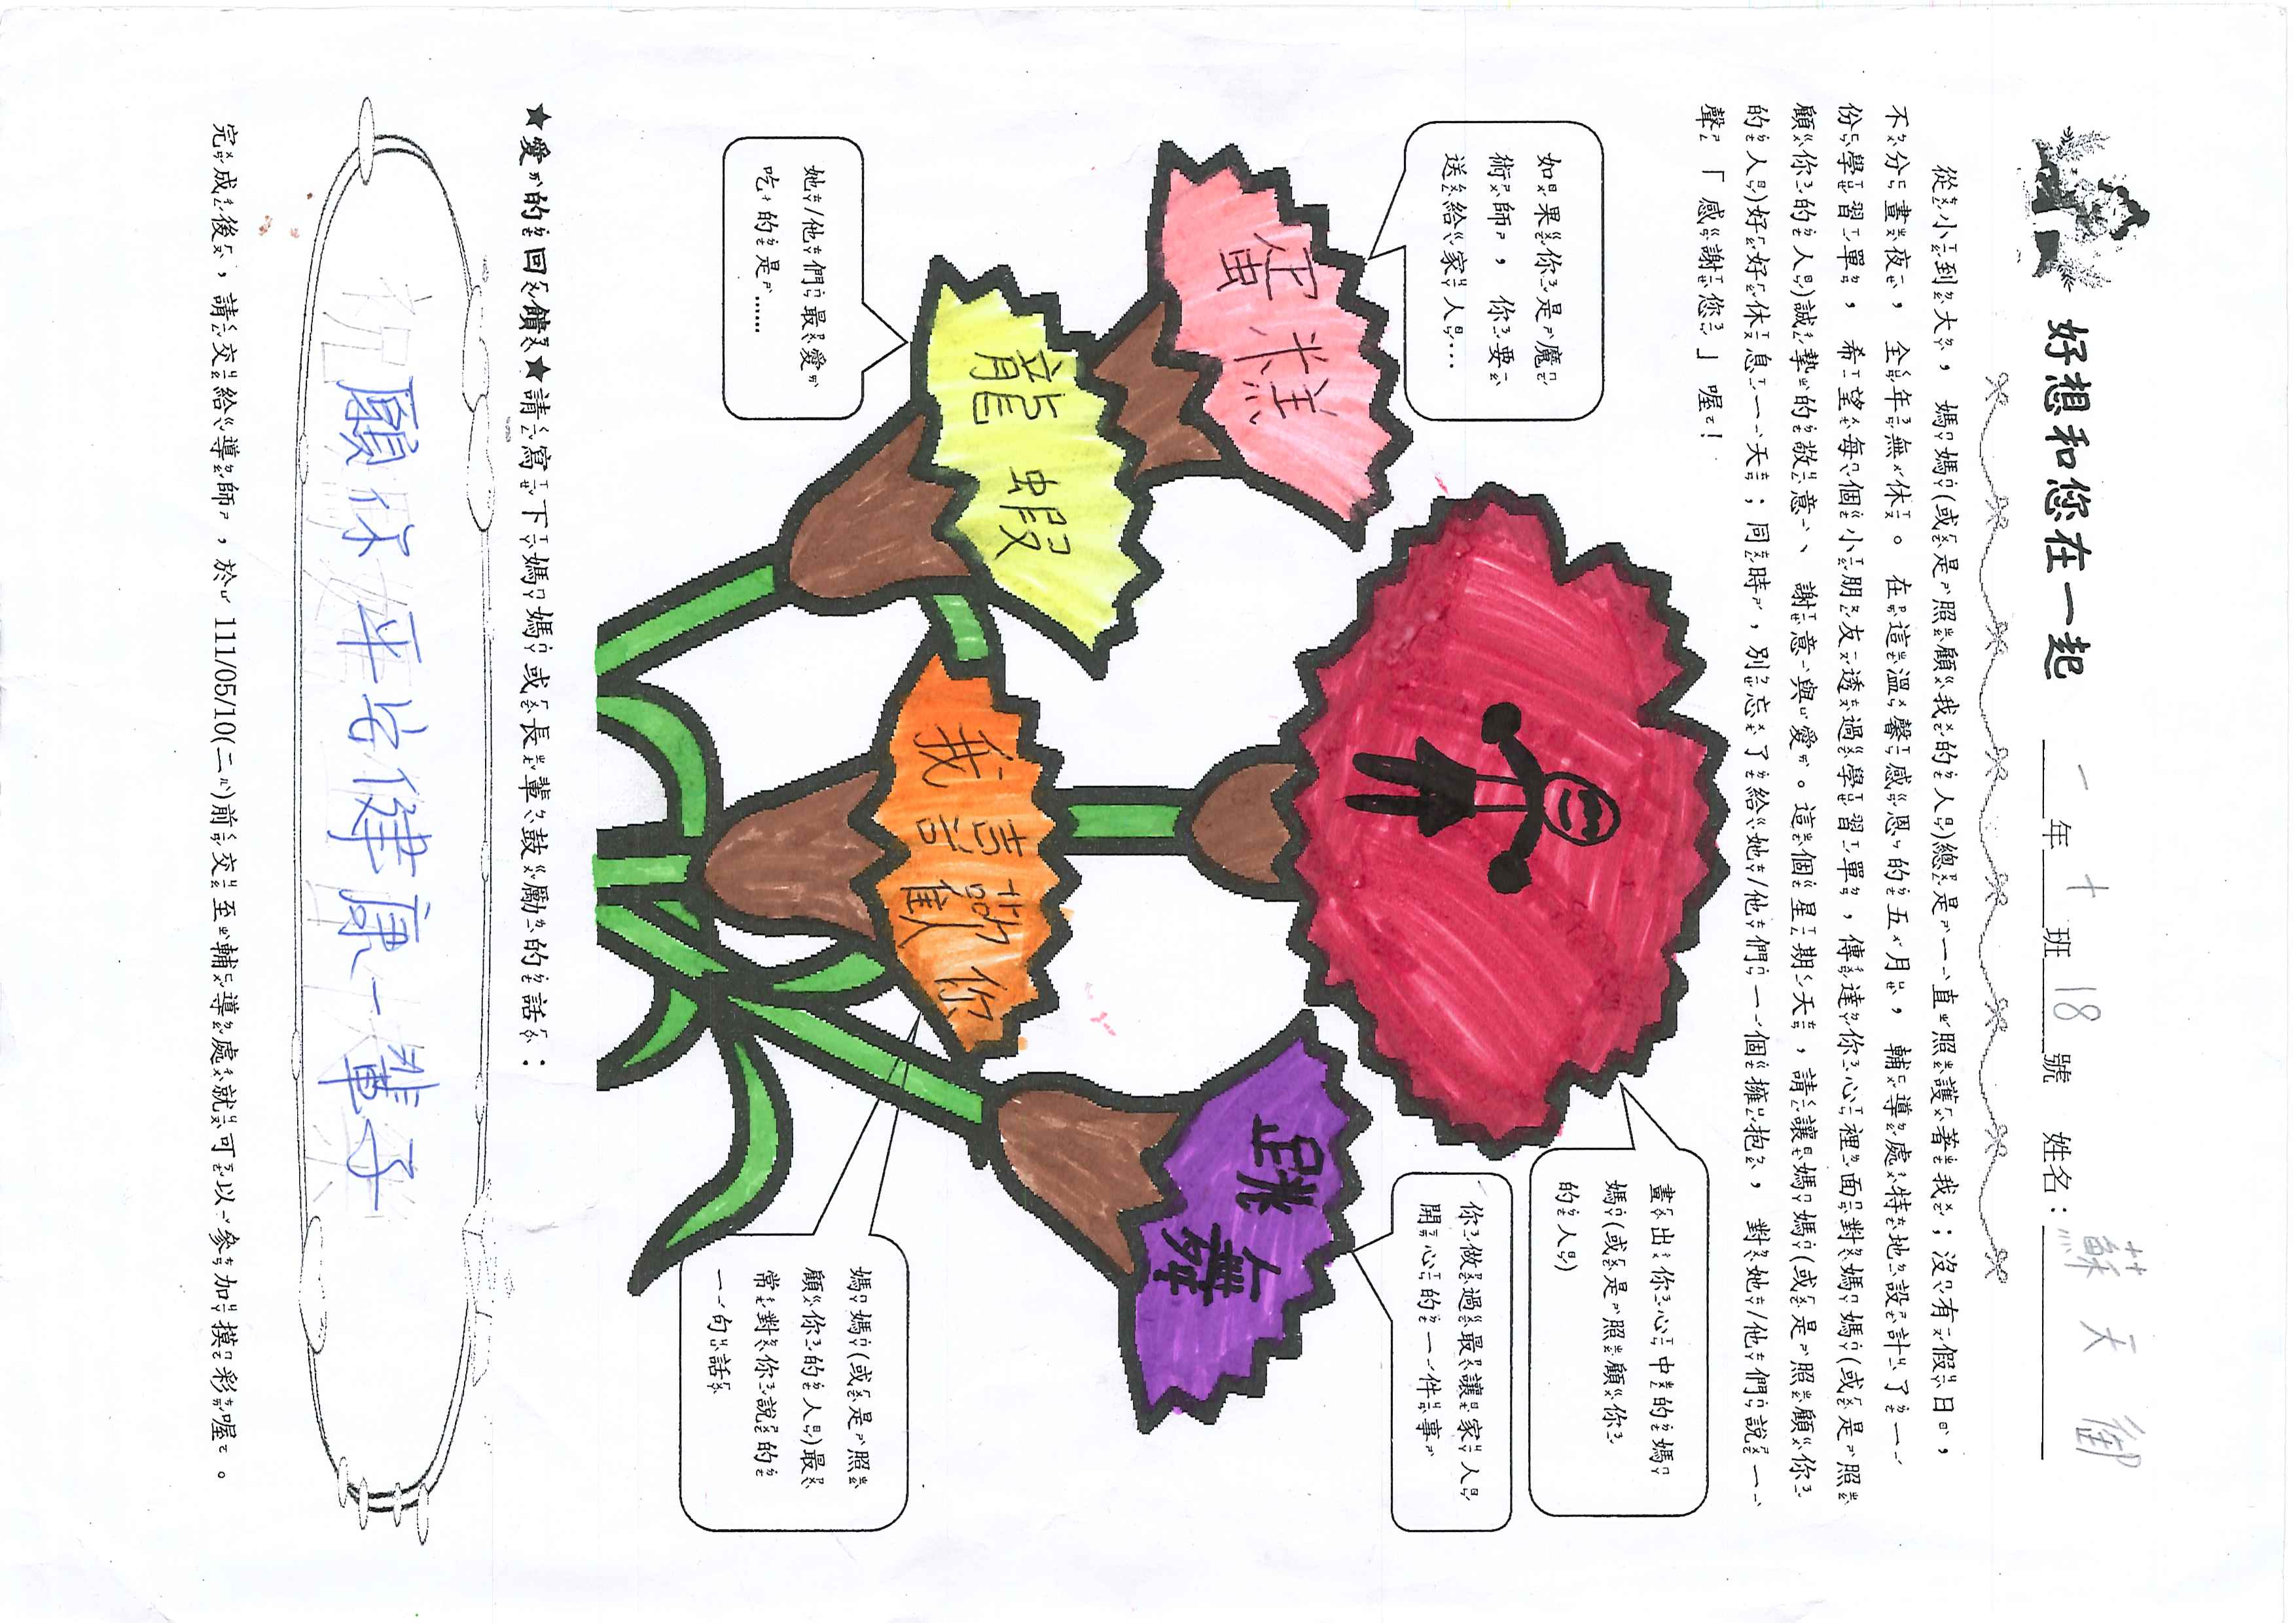 好想和您在一起 一年十班18號 姓名：蘇天御
從小到大，媽媽(或是照顧我的人)總是一直照護著我；沒有假日，
不分晝夜，全年無休。在這溫馨感恩的五月，輔導處特地設計了一
份學習單，希望每個小朋友透過學習單，傳達你心裡面對媽媽(或是照
顧你的人)誠摯的敬意、謝意與愛。這個星期天，請讓媽媽(或是照顧你
的人)好好休息一天；同時，別忘了給她/他們一個擁抱，對她/他們說一
聲「感謝您」喔！
畫出你心中的媽
媽(或是照顧你
的人)
如果你是魔
術師，你要
送給家人…
蛋糕
你做過最讓家人
開心的一件事
跳舞
她/他們最愛
吃的是……
龍蝦
媽媽(或是照
顧你的人)最
常對你說的
一句話
我喜歡你
★愛的回饋★請寫下媽媽或長輩鼓勵的話：
祝願你平安健康一輩子
完成後，請交給導師，於111/05/10(二)前交至輔導處就可以參加摸彩喔。